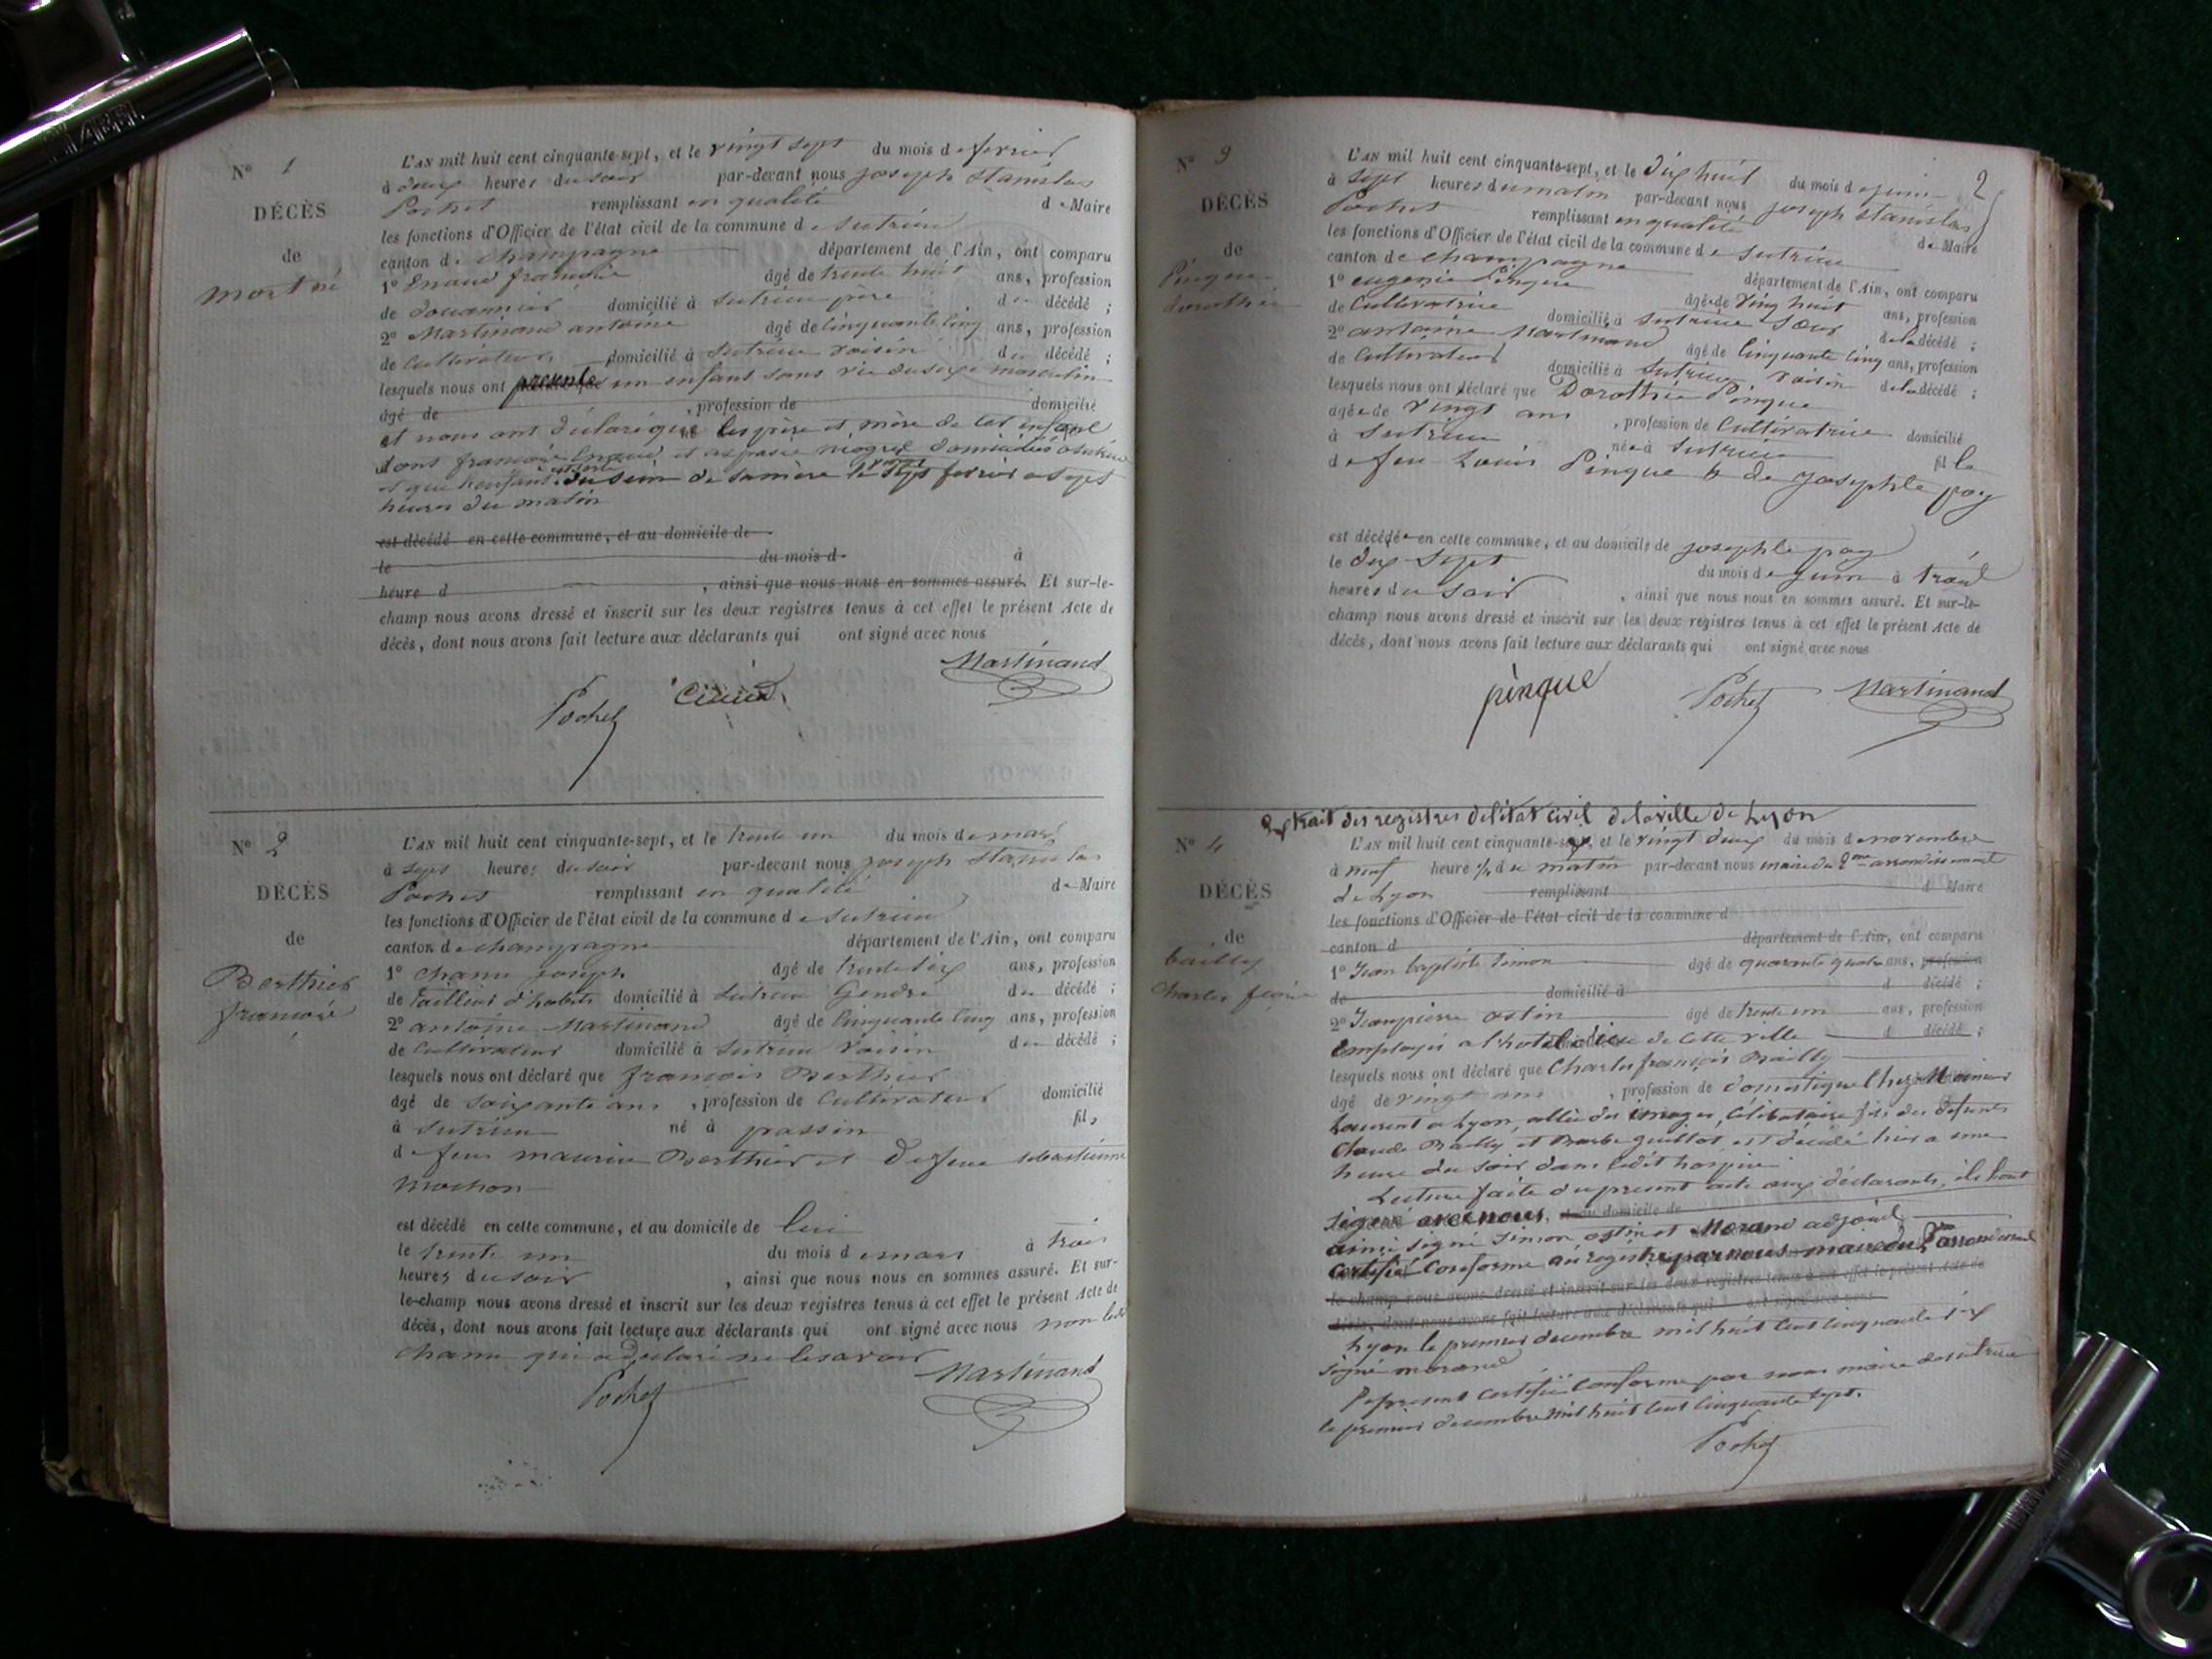 N° 1
DÉCÈS
de
mort né
L'AN mil huit cent cinquante-sept, et le vingt sept du mois de fevrier
à deux heures du soir par-devant nous joseph stanislas
Pochet remplissant en qualité de Maire
les fonctions d'Officier de l'état civil de la commune de sutrieu
canton de champagne département de l'Ain, ont comparu
1° françois âgé de trente huit ans, profession
de douannier domicilié à sutrieu père du décédé ;
2° Martinand antoine âgé de cinquante cinq ans, profession
de cultivateur domicilié à sutrieu voisin du décédé ;
lesquels nous ont presenté un enfant sans vie du sexe masculin
âgé de , profession de domicilié
et nous ont déclaré que les père et mère de cet enfant
sont françois et domiciliés a sutrieu
et que l'enfant du sein de sa mère le vingt sept fevrier a sept
heures du matin
est décédé en cette commune, et au domicile de
le du mois d à
heure d , ainsi que nous nous en sommes assuré. Et sur-le-
champ nous avons dressé et inscrit sur les deux registres tenus à cet effet le présent Acte de
décès, dont nous avons fait lecture aux déclarants qui ont signé avec nous
Martinand
Pochet
N° 2
DÉCÈS
de
Berthier
françois
L'AN mil huit cent cinquante-sept, et le trente un du mois de mars
à sept heures du soir par-devant nous joseph stanislas
Pochet remplissant en qualité de Maire
les fonctions d'Officier de l'état civil de la commune de sutrieu
canton de champagne département de l'Ain, ont comparu
1° joseph âgé de trente six ans, profession
de tailleur d'habits domicilié à sutrieu Gendre du décédé ;
2° antoine Martinand âgé de cinquante cinq ans, profession
de cultivateur domicilié à sutrieu voisin du décédé ;
lesquels nous ont déclaré que françois Berthier
âgé de soixante ans , profession de cultivateur domicilié
à sutrieu né à passin fils
de feu maurice Berthier et de feue sebastienne
Mochon
est décédé en cette commune, et au domicile de lui
le trente un du mois de mars à trois
heures du soir , ainsi que nous nous en sommes assuré. Et sur-
le-champ nous avons dressé et inscrit sur les deux registres tenus à cet effet le présent Acte de
décès, dont nous avons fait lecture aux déclarants qui ont signé avec nous non
qui a declaré ne le savoir
Martinand
Pochet
2
N° 3
DÉCÈS
de
Pinque
dorothée
L'AN mil huit cent cinquante-sept, et le dix huit du mois de juin
à sept heures du matin par-devant nous joseph stanislas
Pochet remplissant en qualité de Maire
les fonctions d'Officier de l'état civil de la commune de sutrieu
canton de champagne département de l'Ain, ont comparu
1° eugenie Pinque âgée de ving huit ans, profession
de cultivatrice domicilié à sutrieu soeur de la décédé ;
2° antoine Martinand âgé de cinquante cinq ans, profession
de cultivateur domicilié à sutrieu voisin de la décédé ;
lesquels nous ont déclaré que Dorothée Pinque
âgée de vingt ans , profession de cultivatrice domicilié
à sutrieu née à sutrieu fille
de feu Louis Pinque & de josephte pay
est décédée en cette commune, et au domicile de josephte pay
le dix sept du mois de juin à trois
heures du soir , ainsi que nous nous en sommes assuré. Et sur-le-
champ nous avons dressé et inscrit sur les deux registres tenus à cet effet le présent Acte de
décès, dont nous avons fait lecture aux déclarants qui ont signé avec nous
pinque Pochet Martinand
Extrait des registres de l'état civil de la ville de Lyon
N° 4
DÉCÈS
de
bailly
Charles
L'AN mil huit cent cinquante-six, et le vingt deux du mois de novembre
à neuf heure 1/2 du matin par-devant nous maire du 2me arrondissement
de Lyon remplissant d Maire
les fonctions d'Officier de l'état civil de la commune d
canton d département de l'Ain, ont comparu
1° Jean baptiste Simon âgé de quarante quatre ans, profession
de domicilié à d décédé ;
2° Jean pierre ostin âgé de trente un ans, profession
employés a l'hotel dieu de cette ville d décédé ;
lesquels nous ont déclaré que Charles françois Bailly
âgé de vingt ans , profession de domestique chez
Laurent a Lyon, allée des images, célibataire fils des defunts
Claude Bailly et Barbe Guillot est décédé hier a une
heure du soir dans ledit hospice
Lecture faite du present acte aux déclarants, ils l'ont
signé avec nous.
ainsi signé Simon ostin et Morand adjoint
certifié conforme au registre par nous maire du 2 arrondissement
le champ nous avons dressé et inscrit sur les deux registres tenus à cet effet le présent Acte de
décès, dont nous avons fait lecture aux déclarants qui ont signé avec nous
Lyon le premier decembre mil huit cent cinquante six
signé morand
Le present certifié conforme par nous maire de sutrieu
le premier decembre mil huit cent cinquante sept.
Pochet